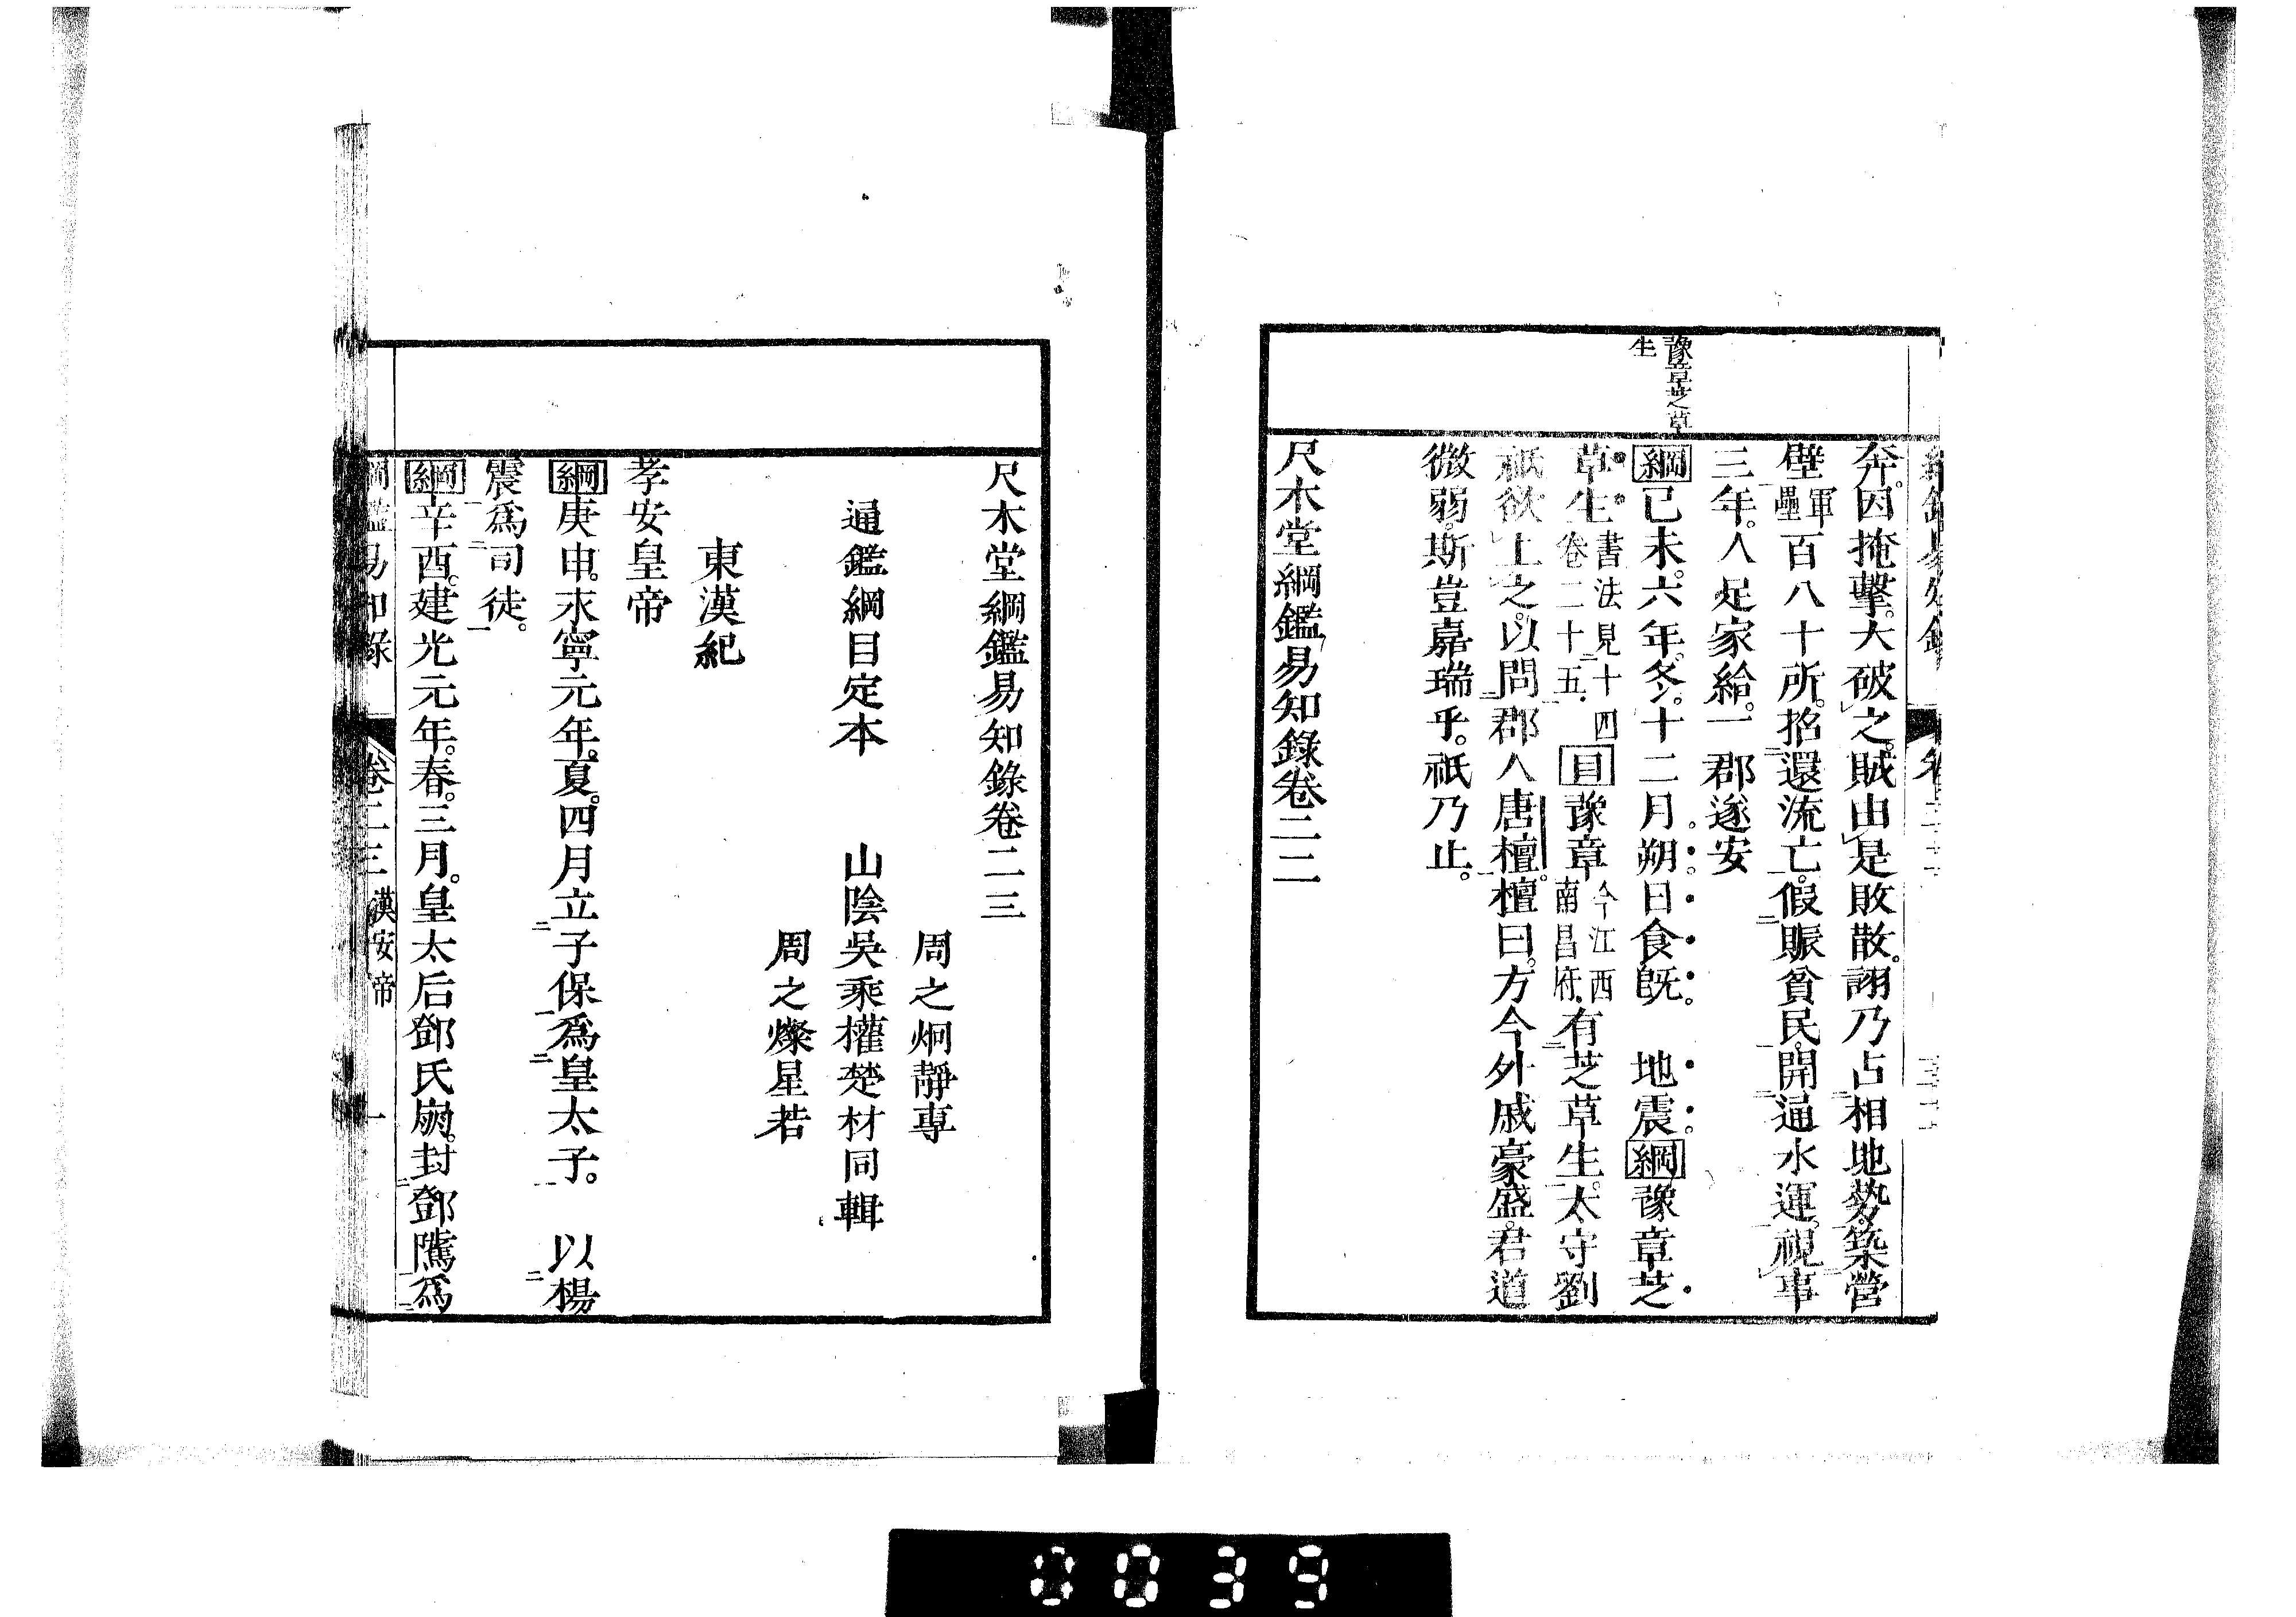 豫章芝草
生
奔。因掩擊。大破之。賊由是敗散。詡乃占相地勢。築營
壁軍壘百八十所。招還流亡。假賑貧民。開通水運。視事
三年。人足家給。一郡遂安
綱己未。六年。冬。十二月朔日食既　地震綱豫章芝
草生書法見十四卷二十五目豫章今江西南昌府有芝草生。太守劉
祇欲上之。以問郡人唐檀。檀曰。方今外戚豪盛。君道
微弱。斯豈嘉瑞乎。祇乃止。
尺木堂綱鑑易知錄卷二二
尺木堂綱鑑易知錄卷二三
周之炯靜專
通鑑綱目定本　山陰吳乘權楚材同輯
周之燦星若
東漢紀
孝安皇帝
綱庚申。永寧元年。夏。四月立子保爲皇太子。　以楊
震爲司徒。
綱辛酉。建光元年。春。三月。皇太后鄧氏崩。封鄧騭爲
綱鑑易知錄　卷二三漢安帝　一
0039